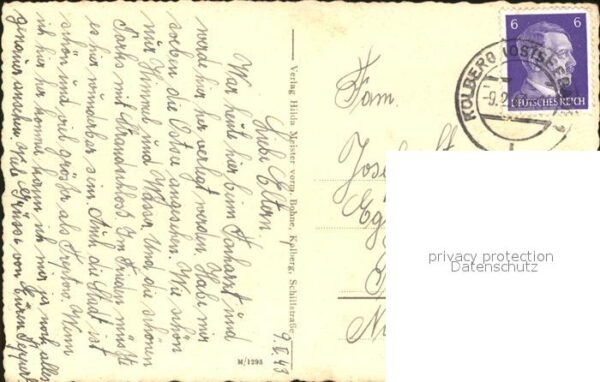 Liebe Eltern.
War heute hier beim Zahnarzt und
werde hier her verlegt werden. Habe mir
soeben die Ostsee angesehen. Wie schön
nur Himmel und Wasser. Und die schönen
Parks mit Strandschloß. Im Frieden müßte
es hier wunderbar sein. Auch die Stadt ist
schön und viel größer als Treptow. Wenn
ich hier her komme kann ich mir ja noch alles
genauer ansehen. Viele Grüße von Euren
9.II.43
Verlag Hilda Meister vorm. Bohne, Kolberg, Schillstraße
M/1293
Fam.
6 6
DEUTSCHES REICH
KOLBERG (OSTSEE
-9.2.
privacy protection
Datenschutz